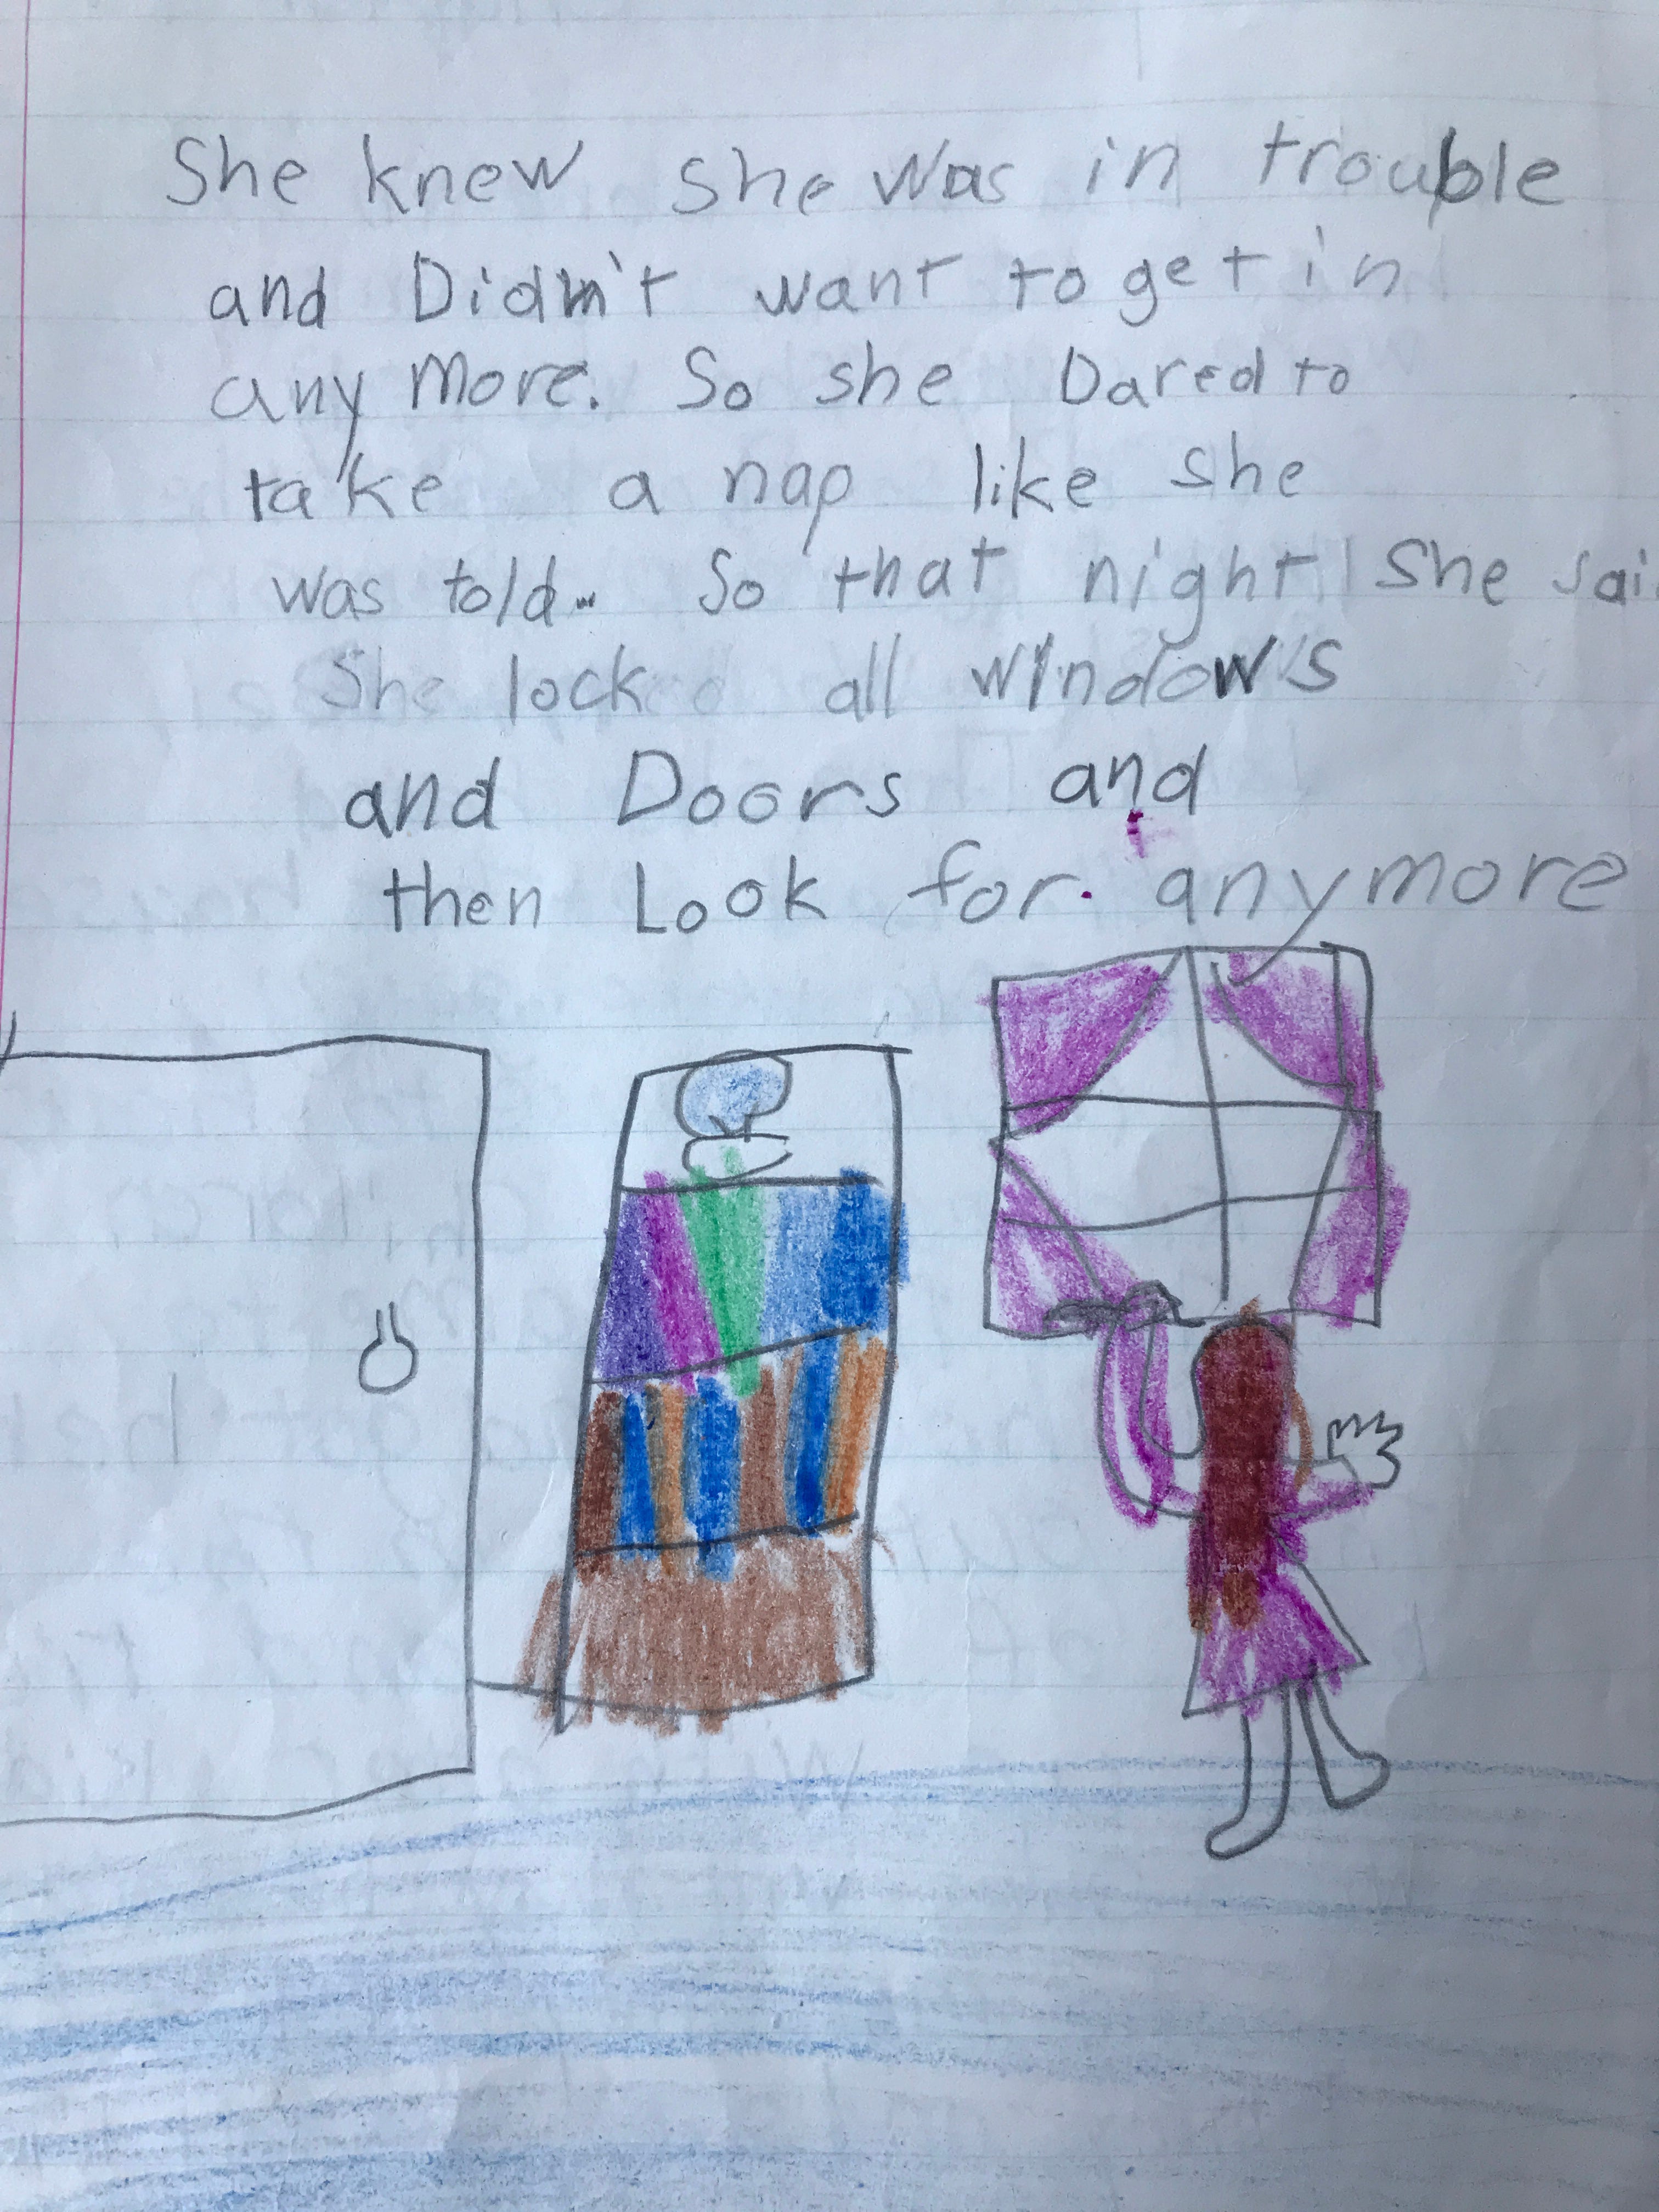 She knew she was in trouble
and Didn't want to get in
any More. So she Dared to
take a nap like she
was told. So that night she sai
She locked all windows
and Doors and
then Look for anymore